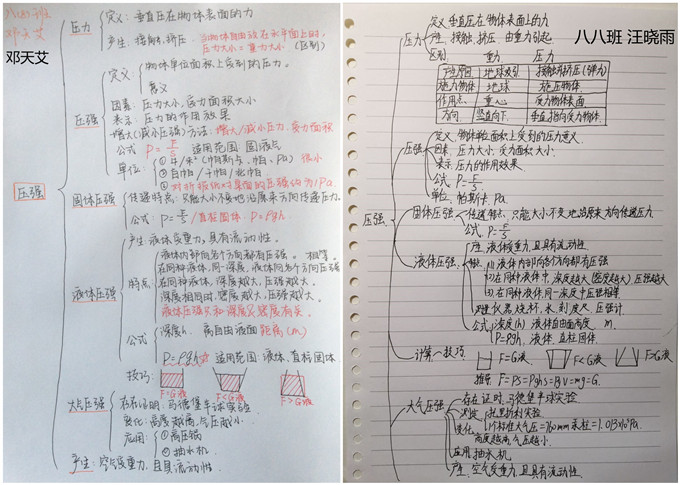 八(8)班
邓天艾
邓天艾
压强
压力
定义：垂直压在物体表面的力
产生：接触，挤压.
当物体自由放在水平面上时，
压力大小=重力大小 (区别)
压强
定义：物体单位面积上受到的压力。
意义
因素：压力大小，受力面积大小
表示：压力的作用效果
增大(减小压强)方法：增大/减小压力，受力面积
公式 P=F/S 适用范围 固液气
单位：
①牛/米² (帕斯卡、帕、Pa) 很小
②百帕/千帕/兆帕
③对折报纸对桌面的压强约为1Pa.
固体压强
传递特点：只能大小不变地沿原来方向传递压力.
公式：P=F/S /直柱固体：P=ρgh
液体压强
产生：液体受重力，具有流动性。
特点：
液体内部向各个方向都有压强。
在同种液体，同一深度，液体向各个方向压强相等。
在同种液体，深度越大，压强越大。
深度相同时，密度越大，压强越大。
液体压强只和深度及密度有关。
公式
深度h. 离自由液面距离(m)
P=ρgh 适用范围：液体，直柱固体
技巧：
F=G液
F<G液
F>G液
大气压强
存在证明：马德堡半球实验
变化：高度越高，气压越小.
应用：①高压锅
②抽水机
产生：空气受重力，且具流动性.
八八班 汪晓雨
压强
压力
定义 垂直压在物体表面上的力
产生 接触，挤压 由重力引起
区别 重力 压力
产生原因 地球吸引 接触和挤压(弹力)
施力物体 地球 施压物体
作用点 重心 受力物体表面
方向 竖直向下 垂直指向受力物体.
压强
定义. 物体单位面积上受到的压力意义
因素. 压力大小，受力面积大小.
表示. 压力的作用效果
公式. P=F/S.
单位. 帕斯卡. Pa.
固体压强
传递特点. 只能大小不变地沿原来方向传递压力
公式. P=F/S
液体压强
产生. 液体受重力，且具有流动性
(1)液体内部向各个方向都有压强
(2)在同种液体中，深度越大(密度越大)压强越大
(3)在同种液体同一深度中压强相等
仪器. 烧杯，水，刻度尺，压强计
公式 深度(h) 液体自由面高度. m.
P=ρgh. 液体，直柱固体.
计算一技巧.
F=G液
F<G液
F>G液
推导 F=PS=ρghs=ρgv=mg=G.
大气压强
存在证明. 马德堡半球实验
测定 托里拆利实验
1个标准大气压=760mm汞柱=1.013x10⁵Pa.
变化 高度越高，气压越小.
应用 抽水机.
产生. 空气受重力，且具有流动性.